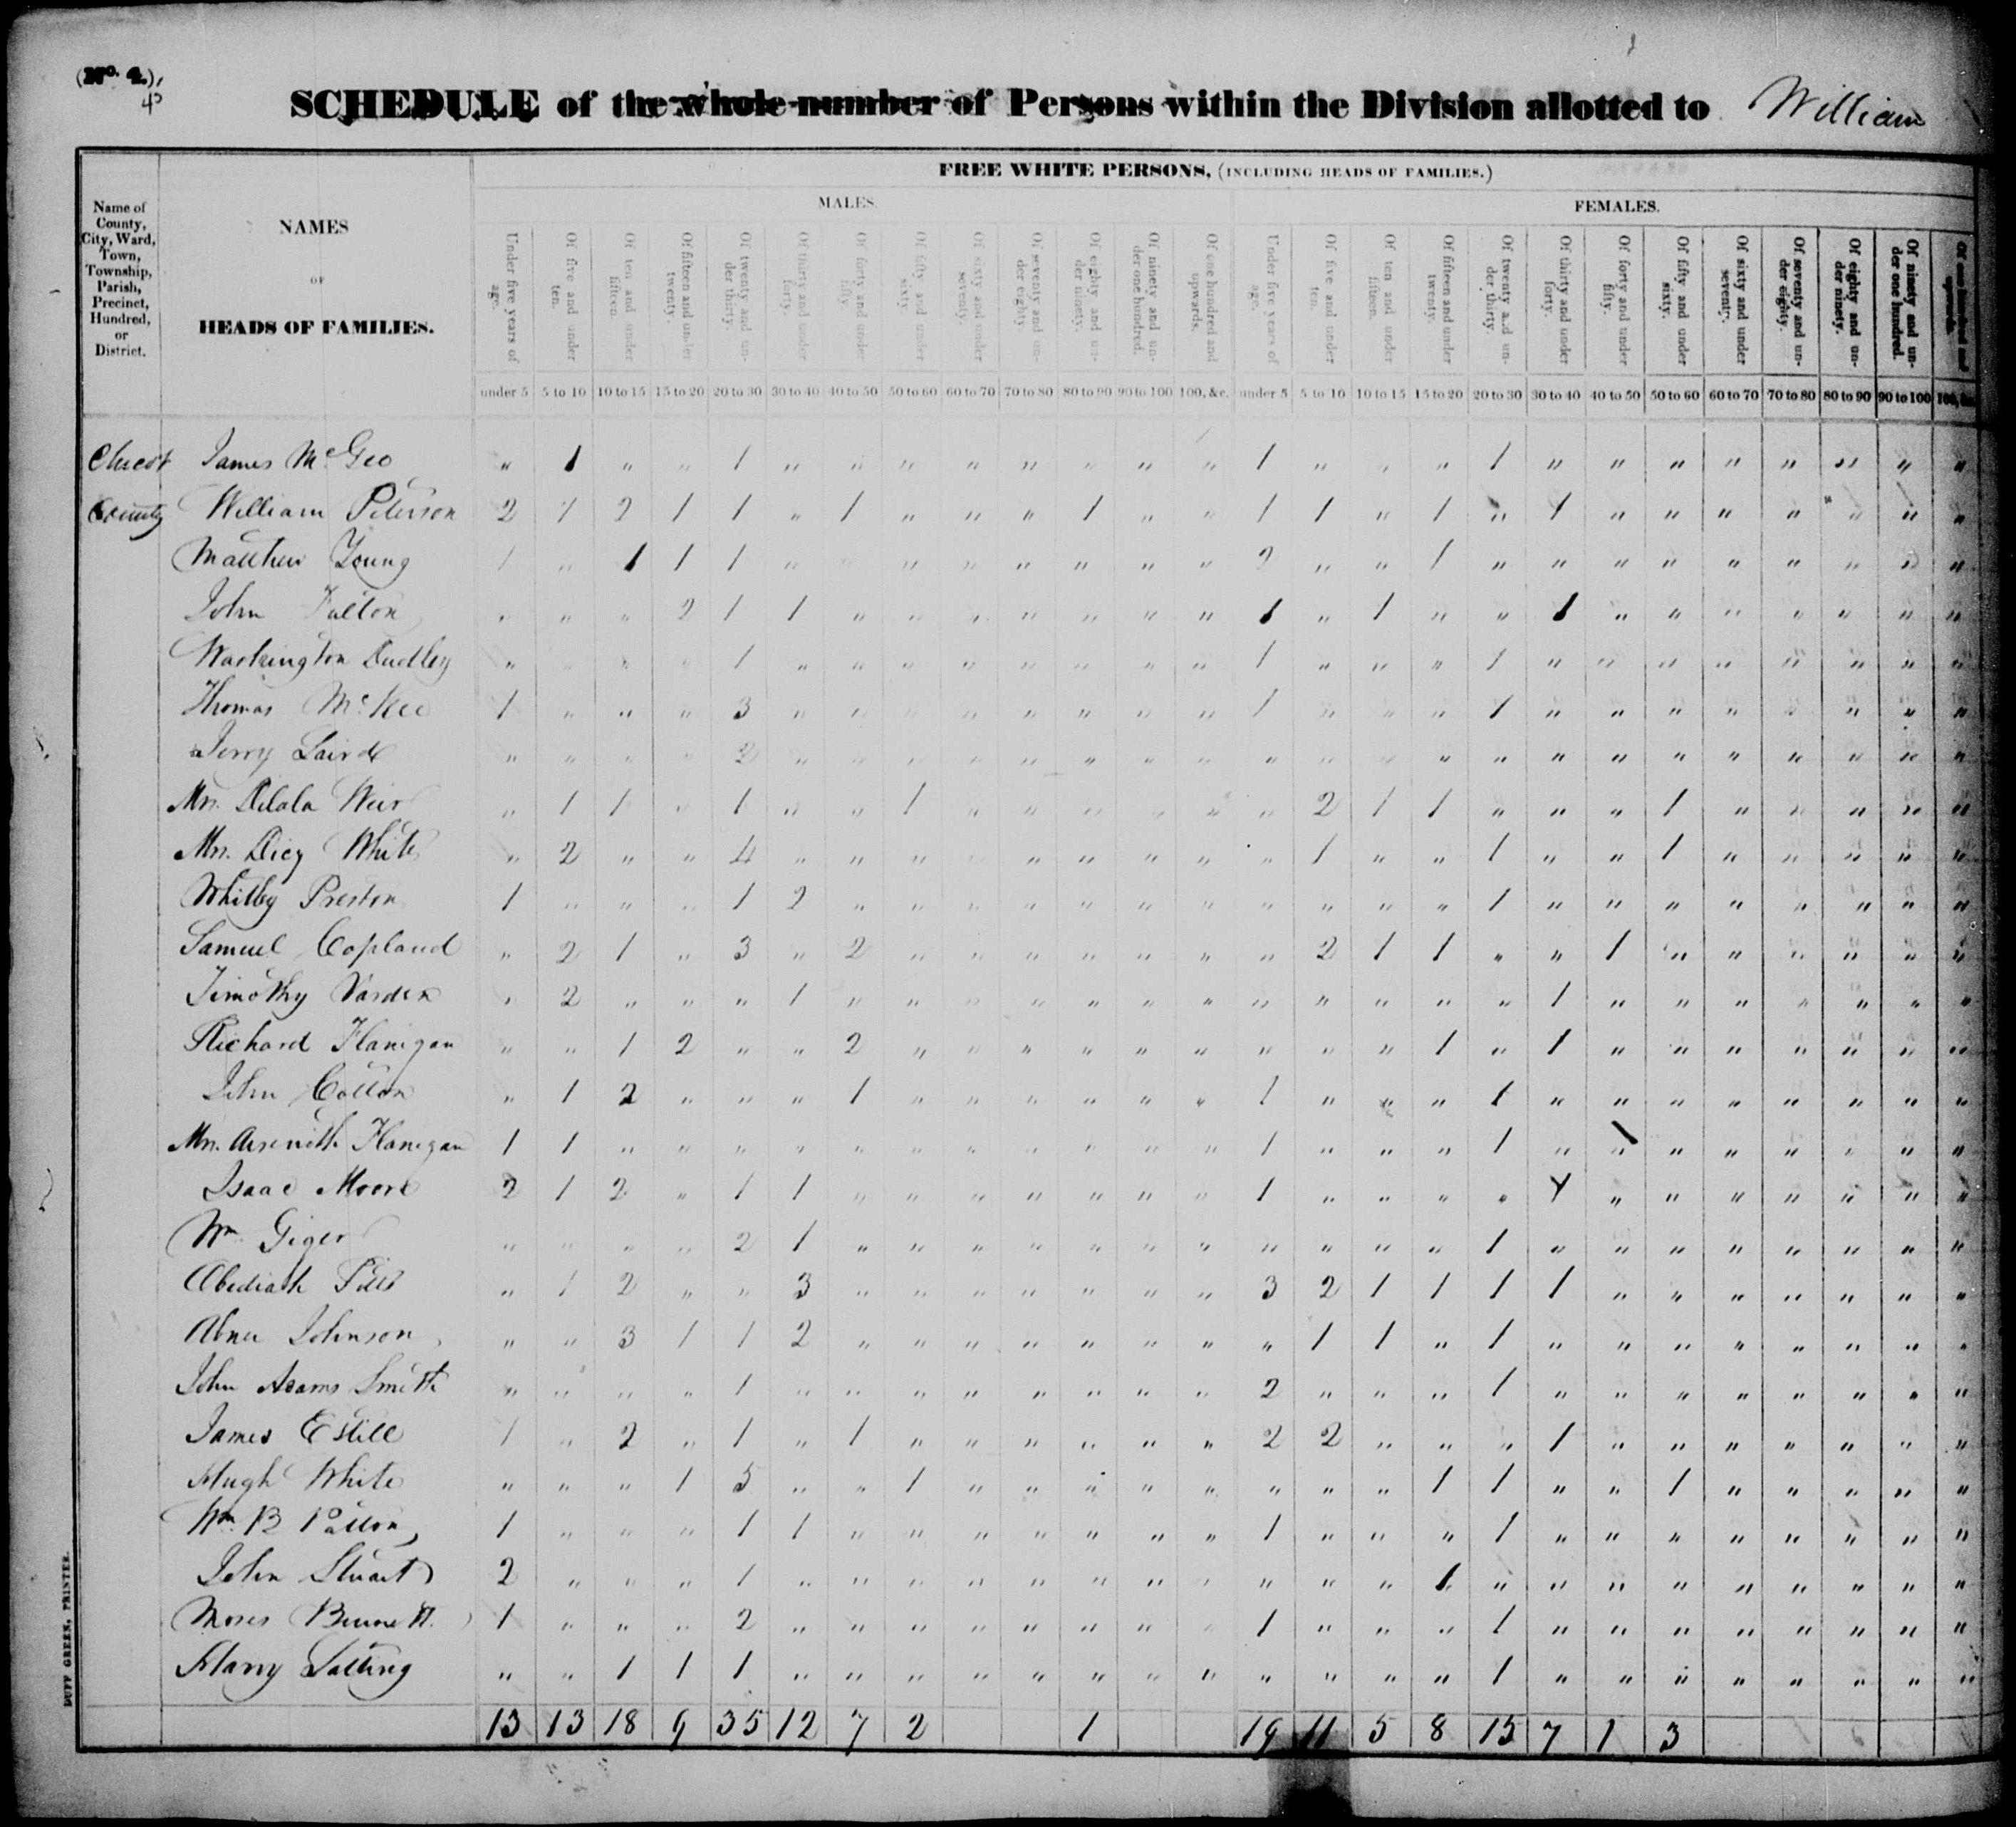 (No. 4.)
SCHEDULE of the whole number of Persons within the Division allotted to William
FREE WHITE PERSONS, (INCLUDING HEADS OF FAMILIES.)
MALES.
FEMALES.
Name of County, City, Ward, Town, Township, Parish, Precinct, Hundred, or District.
NAMES
OF
HEADS OF FAMILIES.
Under five years of age. Of five and under ten. Of ten and under fifteen. Of fifteen and under twenty. Of twenty and under thirty. Of thirty and under forty. Of forty and under fifty. Of fifty and under sixty. Of sixty and under seventy. Of seventy and under eighty. Of eighty and under ninety. Of ninety and under one hundred. Of one hundred and upwards. Under five years of age. Of five and under ten. Of ten and under fifteen. Of fifteen and under twenty. Of twenty and under thirty. Of thirty and under forty. Of forty and under fifty. Of fifty and under sixty. Of sixty and under seventy. Of seventy and under eighty. Of eighty and under ninety. Of ninety and under one hundred. Of one hundred and upwards.
under 5 5 to 10 10 to 15 15 to 20 20 to 30 30 to 40 40 to 50 50 to 60 60 to 70 70 to 80 80 to 90 90 to 100 100, &c. under 5 5 to 10 10 to 15 15 to 20 20 to 30 30 to 40 40 to 50 50 to 60 60 to 70 70 to 80 80 to 90 90 to 100 100, &c.
James McGeo " 1 " " 1 " " " " " " " " 1 " " " 1 " " " " " " " "
County William Peterson 2 1 2 1 1 " 1 " " " 1 " " 1 1 " 1 " 1 " " " " " " "
Matthew Young 1 " 1 1 1 " " " " " " " " 2 " " 1 " " " " " " " " "
John Fulton " " " 2 1 1 " " " " " " " 1 " 1 " " 1 " " " " " " "
Washington Dudley " " " " 1 " " " " " " " " 1 " " " 1 " " " " " " " "
Thomas McKee 1 " " " 3 " " " " " " " " 1 " " " 1 " " " " " " " "
Jerry Laird " " " " 2 " " " " " " " " " " " " " " " " " " " " "
Mrs. Dilala Weir " 1 1 " 1 " " 1 " " " " " " 2 1 1 " " " 1 " " " " "
Mrs. Dicy White " 2 " " 4 " " " " " " " " " 1 " " 1 " " 1 " " " " "
Whitley Preston 1 " " " 1 2 " " " " " " " " " " " 1 " " " " " " " "
Samuel Copland " 2 1 " 3 " 2 " " " " " " " 2 1 1 " " 1 " " " " " "
Timothy Varden " 2 " " " 1 " " " " " " " " " " " " 1 " " " " " " "
Richard Flanigan " " 1 2 " " 2 " " " " " " " " " 1 " 1 " " " " " " "
John Cotton " 1 2 " " " 1 " " " " " " 1 " " " 1 " " " " " " " "
Mrs. Arsenith Flanigan 1 1 " " " " " " " " " " " 1 " " " 1 " 1 " " " " " "
Isaac Moore 2 1 2 " 1 1 " " " " " " " 1 " " " " 1 " " " " " " "
Wm Giger " " " " 2 1 " " " " " " " " " " " 1 " " " " " " " "
Obediah " 1 2 " " 3 " " " " " " " 3 2 1 1 1 1 " " " " " " "
Abner Johnson " " 3 1 1 2 " " " " " " " " 1 1 " 1 " " " " " " " "
John Adams Smith " " " " 1 " " " " " " " " 2 " " " 1 " " " " " " " "
James Estill 1 " 2 " 1 " 1 " " " " " " 2 2 " " " 1 " " " " " " "
Hugh White " " " 1 5 " " 1 " " " " " " " " 1 1 " " 1 " " " " "
Wm B Patton 1 " " " 1 1 " " " " " " " 1 " " " 1 " " " " " " " "
John Stuart 2 " " " 1 " " " " " " " " " " " 1 " " " " " " " " "
Moses Bennett 1 " " " 2 " " " " " " " " 1 " " " 1 " " " " " " " "
" " 1 1 1 " " " " " " " " " " " " 1 " " " " " " " "
13 13 18 9 35 12 7 2 1 19 11 5 8 15 7 1 3
DUFF GREEN, PRINTER.